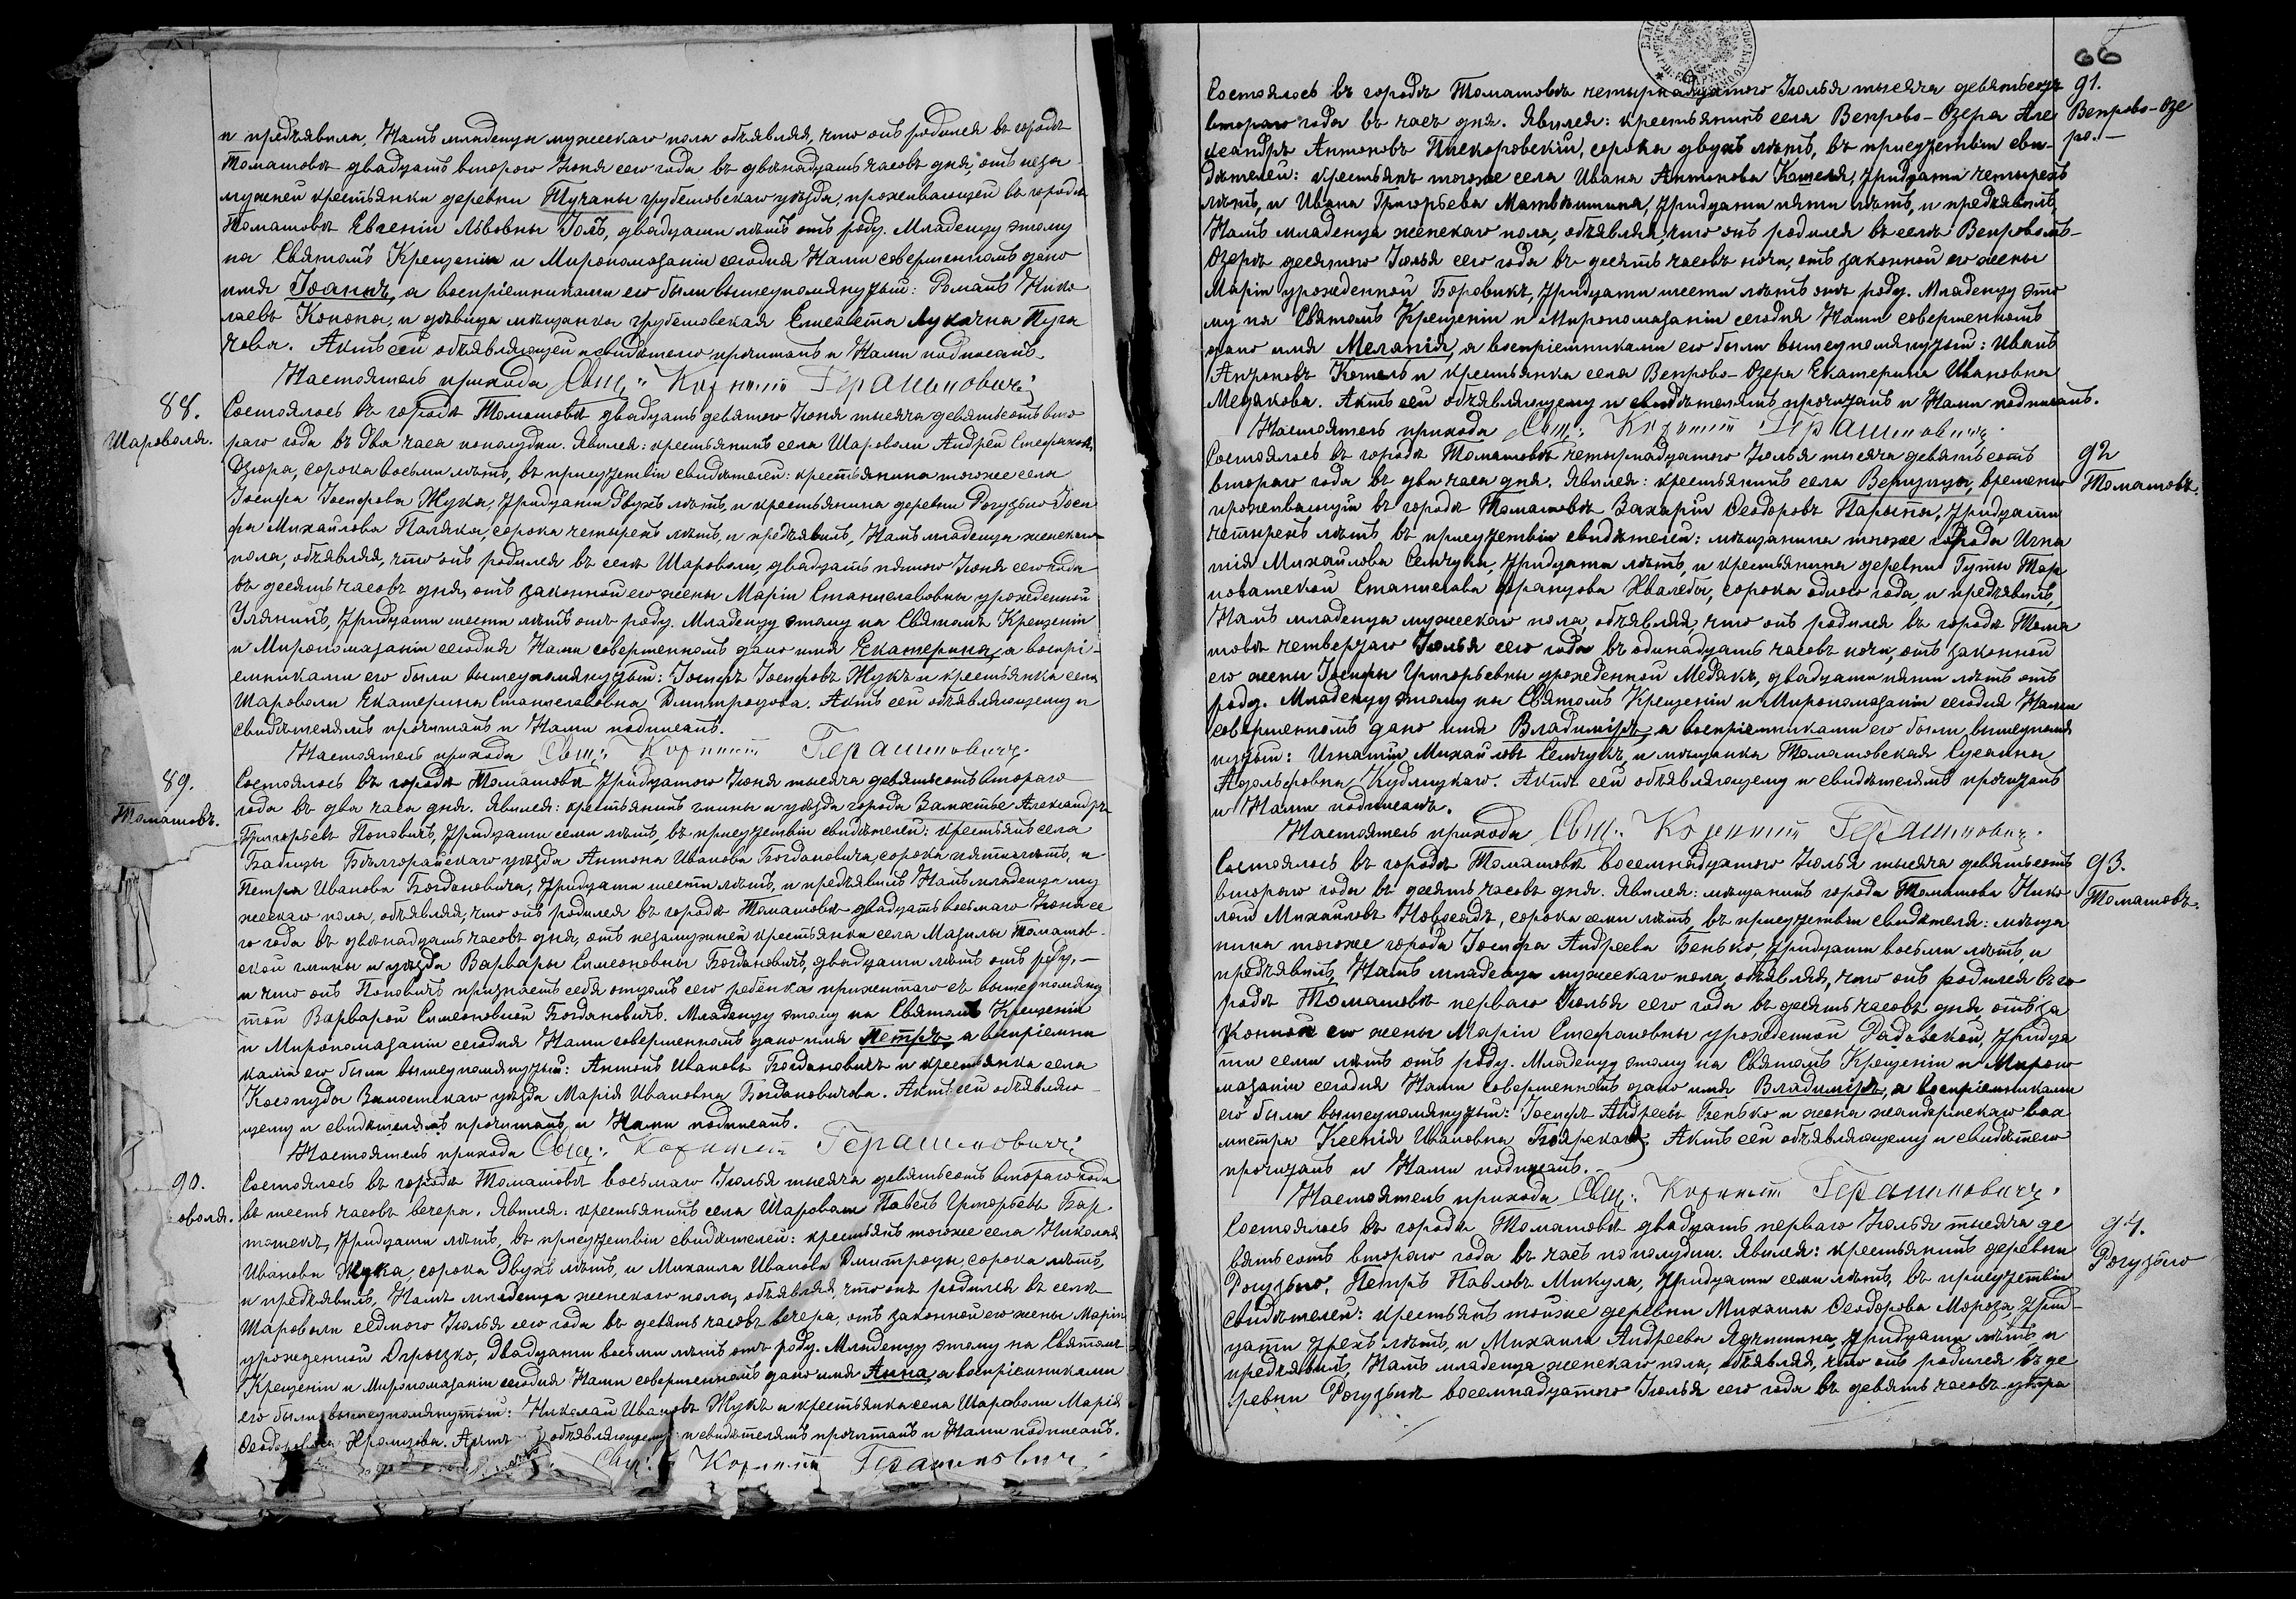 и предъявила, Намъ младенца мужескаго пола объявляя, что онъ родился въ городѣ
Томашовѣ двадцать второго Іюня сего года въ двѣнадцать часовъ дня, отъ неза
мужней крестьянки деревни Тучапы грубешовскаго уѣзда, проживающей въ городѣ
Томашовѣ Евгеніи Львовны Голь, двадцати лѣтъ отъ роду. Младенцу этому
на Святомъ Крещеніи и Миропомазаніи сегодня Нами совершенномъ дано
имя Іоаннъ, а воспріемниками его были вышеупомянутый: Романъ Нико
лаевъ Конопа, и дѣвица мѣщанка грубешовская Елисавета Лукачна Пуга
чова. Актъ сей объявляющей и свидѣтелю прочитанъ и Нами подписанъ.
Настоятель прихода Свящ: Корнилій Герасимовичъ
88.
Шароволя.
Состоялось въ городѣ Томашовѣ двадцать девятого Іюня тысяча девятьсотъ вто
раго года въ два часа пополудни. Явился: крестьянинъ села Шароволи Андрей Стефановъ
Дзюра, сорока восьми лѣтъ, въ присутствіи свидѣтелей: крестьянина тогоже села
Іосифа Іосифова Жука, тридцати двухъ лѣтъ, и крестьянина деревни Рогузьно Іоси
фа Михайлова Паляка, сорока четырехъ лѣтъ, и предъявилъ, Намъ младенца женскаго
пола, объявляя, что онъ родился въ селѣ Шароволи, двадцать пятого Іюня сего года
въ десять часовъ дня, отъ законной его жены Маріи Станиславовны урожденной
Улянинъ, тридцати шести лѣтъ отъ роду. Младенцу этому на Святомъ Крещеніи
и Миропомазаніи сегодня Нами совершенномъ дано имя Екатерина, а воспрі-
емниками его были вышеупомянутый: Іосифъ Іосифовъ Жукъ и крестьянка села
Шароволи Екатерина Станиславовна Дмитроцова. Актъ сей объявляющему и
свидѣтелямъ прочитанъ и Нами подписанъ.
Настоятель прихода Свящ: Корнилій Герасимовичъ
89.
Томашовъ.
Состоялось въ городѣ Томашовѣ тридцатого Іюня тысяча девятьсотъ втораго
года въ два часа дня. Явился: крестьянинъ гмины и уѣзда города Замостье Александръ
Григорьевъ Поповичъ, тридцати семи лѣтъ, въ присутствіи свидѣтелей: крестьянъ села
Бабицы Бѣлгорайскаго уѣзда Антона Иванова Богдановича, сорока пяти лѣтъ, и
Петра Иванова Богдановича, тридцати шести лѣтъ, и предъявилъ Намъ младенца му
жескаго пола, объявляя, что онъ родился въ городѣ Томашовѣ двадцать восьмаго Іюня се
го года въ двѣнадцать часовъ дня, отъ незамужней крестьянки села Мазилы Томашов-
ской гмины и уѣзда Варвары Симеоновны Богдановичъ, двадцати лѣтъ отъ роду,—
и что онъ Поповичъ признаетъ себя отцомъ сего ребёнка прижитаго съ вышеупомяну
той Варварой Симеоновной Богдановичъ. Младенцу этому на Святомъ Крещеніи
и Миропомазаніи сегодня Нами совершенномъ дано имя Петръ, а воспріемни
ками его были вышеупомянутый: Антонъ Ивановъ Богдановичъ и крестьянка села
Кособуды Замостскаго уѣзда Марія Ивановна Богдановичова. Актъ сей объявляю
щему и свидѣтелямъ прочитанъ и Нами подписанъ.
Настоятель прихода Свящ: Корнилій Герасимовичъ
90.
оволя.
Состоялось въ городѣ Томашовѣ восьмаго Іюлья тысяча девятьсотъ втораго года
въ шесть часовъ вечера. Явился: крестьянинъ села Шароволи Павелъ Григорьевъ Бар
тошекъ, тридцати лѣтъ, въ присутствіи свидѣтелей: крестьянъ тогоже села Николая
Иванова Жука, сорока двухъ лѣтъ, и Михаила Иванова Дмитроцы, сорока лѣтъ,
и предъявилъ, Намъ младенца женскаго пола, объявляя, что онъ родился въ селѣ
Шароволи седмого Іюлья сего года въ девять часовъ вечера, отъ законной его жены Маріи
урожденной Огрызко, двадцати восьми лѣтъ отъ роду. Младенцу этому на Святомъ
Крещеніи и Миропомазаніи сегодня Нами совершенномъ дано имя Анна, а воспріемниками
его были вышеупомянутый: Николай Ивановъ Жукъ и крестьянка села Шароволи Марія
Ѳеодоровна Хромцова. Актъ объявляющему и свидѣтелямъ прочитанъ и Нами подписанъ.
Свящ: Корнилій Герасимовичъ
66
91.
Вепрово-Озе
ро.—
Состоялось въ городѣ Томашовѣ четырнадцатого Іюлья тысяча девятьсотъ
второго года въ часъ дня. Явился: крестьянинъ села Вепрово-Озера Але
ксандръ Антоновъ Пискоровскій, сорока двухъ лѣтъ, въ присутствіи сви-
дѣтелей: крестьянъ тогоже села Ивана Антонова Кошеля, тридцати четырехъ
лѣтъ, и Ивана Григорьева Матвѣишина, тридцати пяти лѣтъ, и предъявилъ,
Намъ младенца женскаго пола, объявляя, что онъ родился въ селѣ Вепровомъ-
Озерѣ десятого Іюлья сего года въ десять часовъ ночи, отъ законной его жены
Маріи урожденной Боровикъ, тридцати шести лѣтъ отъ роду. Младенцу это
му на Святомъ Крещеніи и Миропомазаніи сегодня Нами совершенномъ
дано имя Меланія, а воспріемниками его были вышеупомянутый: Иванъ
Антоновъ Кошель и крестьянка села Вепрово-Озера Екатерина Ивановна
Медакова. Актъ сей объявляющему и свидѣтелямъ прочитанъ и Нами подписанъ.
Настоятель прихода Свящ: Корнилій Герасимовичъ
92
Томашовъ.
Состоялось въ городѣ Томашовѣ четырнадцатого Іюлья тысяча девятьсотъ
втораго года въ два часа дня. Явился: крестьянинъ села Вепупцы, временно
проживающій въ городѣ Томашовѣ Захарій Ѳеодоровъ Парыпа, тридцати
четырехъ лѣтъ въ присутствіи свидѣтелей: мѣщанина тогоже города Игна
тія Михайлова Семчука, тридцати лѣтъ, и крестьянина деревни Гуты Тар
новатской Станислава Францова Хвалебы, сорока одного года, и предъявилъ,
Намъ младенца мужескаго пола, объявляя, что онъ родился въ городѣ Тома
шовѣ четвертаго Іюлья сего года въ одинадцать часовъ ночи, отъ законной
его жены Іосифы Григорьевны урожденной Медакъ, двадцати пяти лѣтъ отъ
роду. Младенцу этому на Святомъ Крещеніи и Миропомазаніи сегодня Нами
совершенномъ дано имя Владиміръ, а воспріемниками его были вышеупомя
нутый: Игнатій Михайловъ Семчукъ, и мѣщанка Томашовская Сусанна
Адольфовна Кудлицкаго. Актъ сей объявляющему и свидѣтелямъ прочитанъ
и Нами подписанъ.
Настоятель прихода Свящ: Корнилій Герасимовичъ.
93.
Томашовъ.
Состоялось въ городѣ Томашовѣ восемнадцатого Іюлья тысяча девятьсотъ
втораго года въ десять часовъ дня. Явился: мѣщанинъ города Томашова Нико
лай Михайловъ Новосадъ, сорока семи лѣтъ, въ присутствіи свидѣтеля: мѣща
нина тогоже города Іосифа Андреева Бенько, тридцати восьми лѣтъ, и
предъявилъ, Намъ младенца мужескаго пола, объявляя, что онъ родился въ го
родѣ Томашовѣ перваго Іюлья сего года въ десять часовъ дня, отъ за
конной его жены Маріи Стефановны урожденной Радовской, тридца
ти семи лѣтъ отъ роду. Младенцу этому на Святомъ Крещеніи и Миропо
мазаніи сегодня Нами совершенномъ дано имя Владиміръ, а воспріемниками
его были вышеупомянутый: Іосифъ Андреевъ Бенько и жена жандармскаго вах
мистра Ксенія Ивановна Боярская. Актъ сей объявляющему и свидѣтелю
прочитанъ и Нами подписанъ.
Настоятель прихода Свящ: Корнилій Герасимовичъ.
94.
Рогузьно
Состоялось въ городѣ Томашовѣ двадцать перваго Іюлья тысяча де
вятьсотъ втораго года въ часъ пополудни. Явился: крестьянинъ деревни
Рогузьно, Петръ Павловъ Микула, тридцати семи лѣтъ, въ присутствіи
свидѣтелей: крестьянъ тойже деревни Михаила Ѳеодорова Мороза, трид-
цати трехъ лѣтъ, и Михаила Андреева Ядчишина, тридцати лѣтъ, и
предъявилъ, Намъ младенца женскаго пола, объявляя, что онъ родился въ де
ревни Рогузьнѣ восемнадцатого Іюлья сего года въ девять часовъ утра